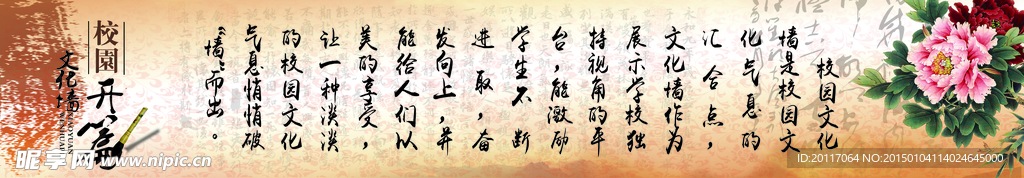 校園
文化墙
开篇
校园文化
墙是校园文
化气息的
汇合点，
文化墙作为
展示学校独
持视角的平
台，能激励
学生不断
进取，奋
发向上，并
能给人们以
美的享受，
让一种淡淡
的校园文化
气息悄悄破
“墙”而出。
昵享网 www.nipic.cn
ID:20117064 NO:20150104114024645000